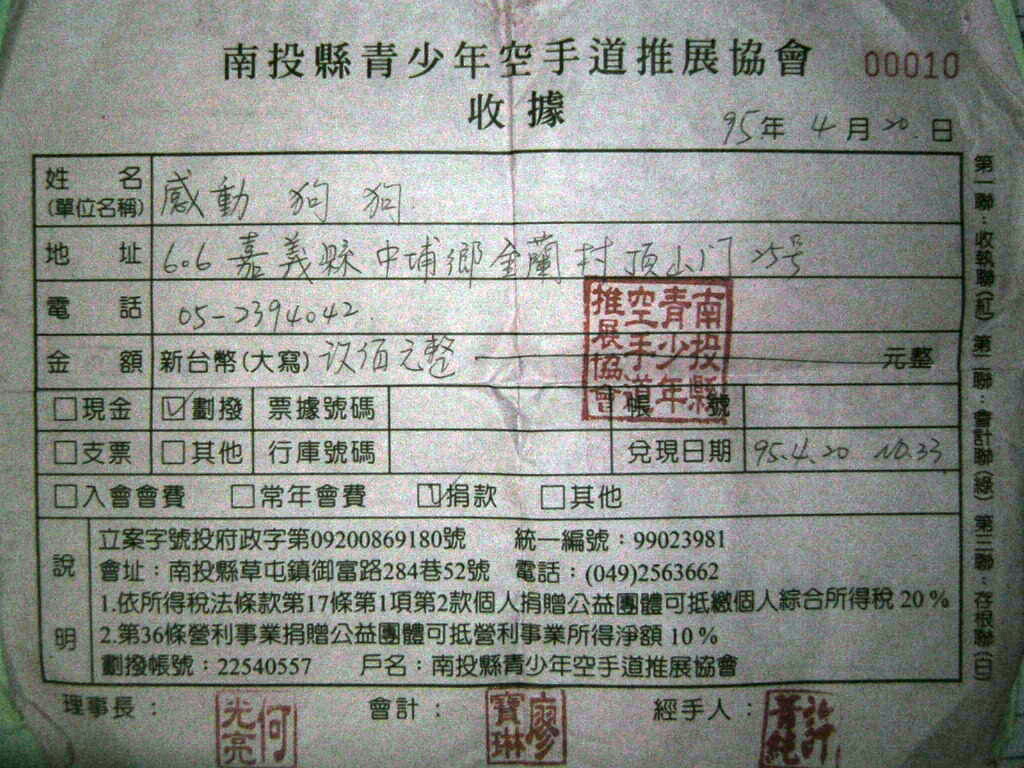 南投縣青少年空手道推展協會
00010
收據
95年 4月 20.日
姓名
(單位名稱)
感動 狗狗
地址
606 嘉義縣中埔鄉金蘭村頂山门 25号
電話
05-2394042.
金額
新台幣(大寫) 伍佰元整 元整
□現金 ☑劃撥 票據號碼 帳號
□支票 □其他 行庫號碼 兌現日期 95.4.20 NO.33
□入會會費 □常年會費 ☑捐款 □其他
說明
立案字號投府政字第09200869180號 統一編號：99023981
會址：南投縣草屯鎮御富路284巷52號 電話：(049)2563662
1.依所得稅法條款第17條第1項第2款個人捐贈公益團體可抵繳個人綜合所得稅 20%
2.第36條營利事業捐贈公益團體可抵營利事業所得淨額 10%
劃撥帳號：22540557 戶名：南投縣青少年空手道推展協會
理事長： 會計： 經手人：
何光亮
廖寶琳
南投縣青少年空手道推展協會
第一聯：收執聯(紅) 第二聯：會計聯(綠) 第三聯：存根聯(白)